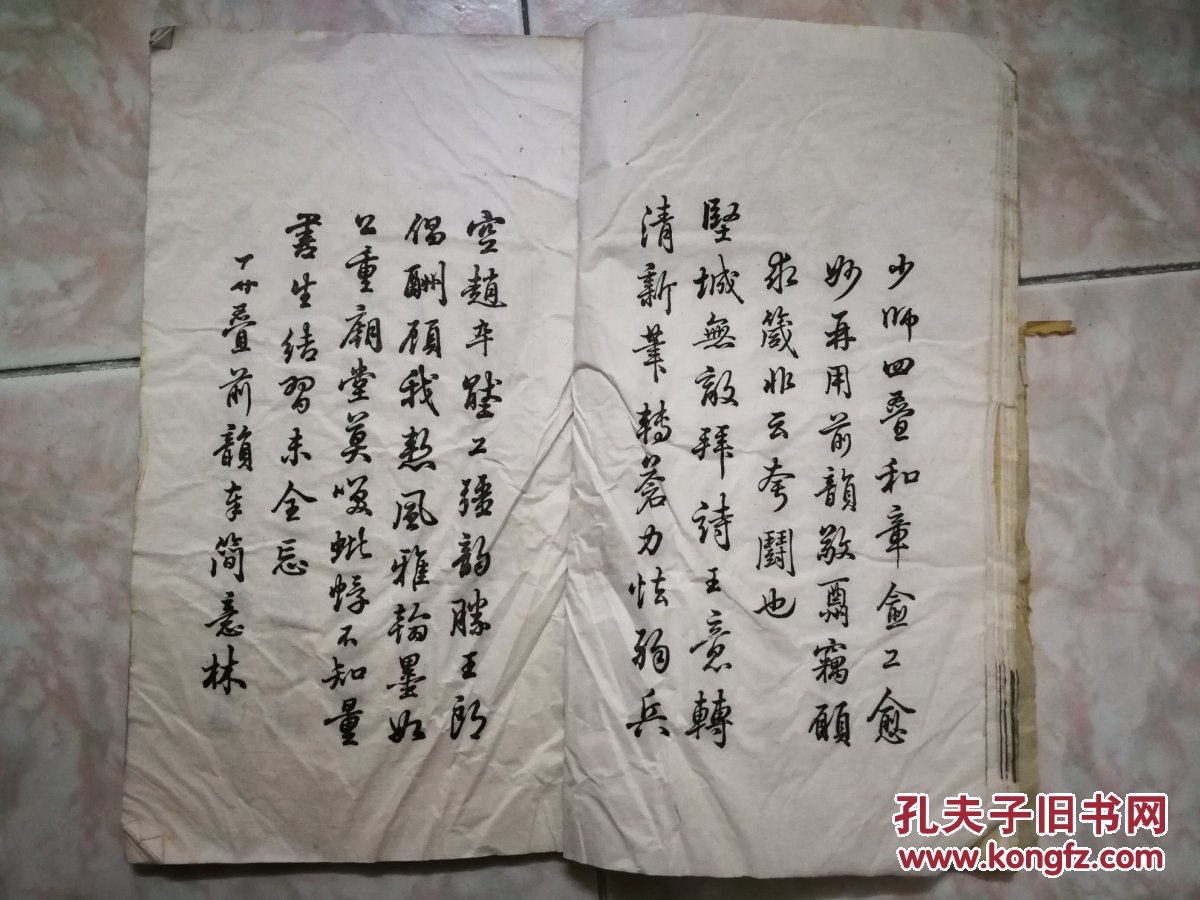 少師四疊和章愈工愈
妙再用前韻敬酬竊願
求箴非云夸鬪也
堅城無敵拜詩王意轉
清新筆轉蒼力怯弱兵
空趙卒 工強韵勝王郎
倡酬顧我慙風雅翰墨如
公重廟堂莫哂蚍蜉不知量
書生結習未全忘
疊前韻奉簡意林
孔夫子旧书网
www.kongfz.com